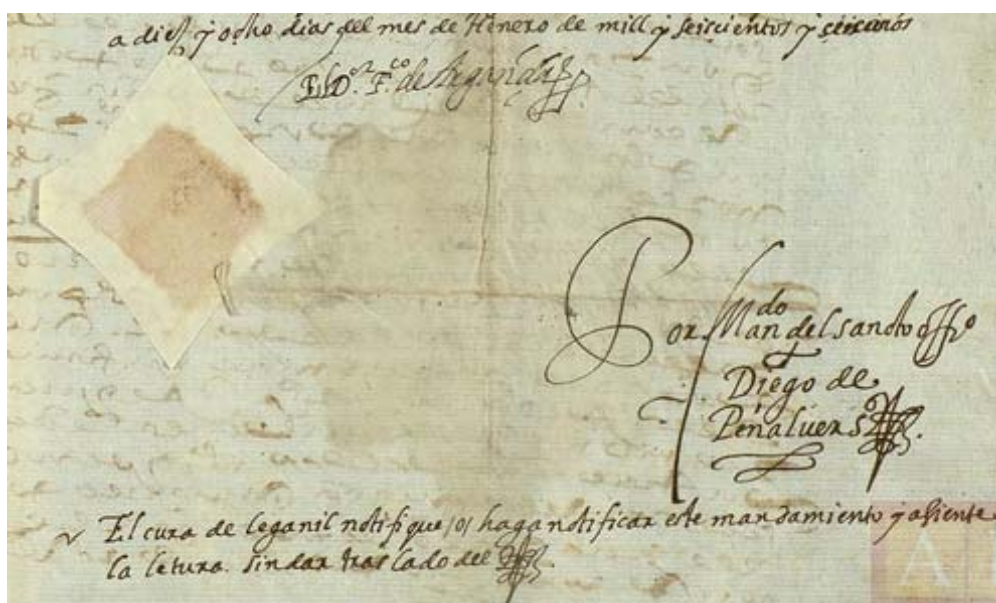 a diez y ocho dias del mes de Henero de mill y seiscientos y seis años
El D.or F.co de
Por Man.do del sancto offi.o
Diego de
Peñaluer
El cura de leganil notifique /o/ haga notificar este mandamiento y asiente
la letura. sin dar traslado del
A